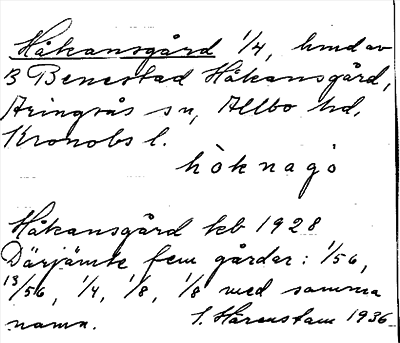 Håkansgård 1/4, hmd av
B Benestad Håkansgård,
Aringsås sn, Allbo hd,
Kronobs l.
hòknagò
Håkansgård kb 1928
Därjämte fem gårdar: 1/56,
13/56, 1/4, 1/8, 1/8 med samma
namn. S. Hårenstam 1936